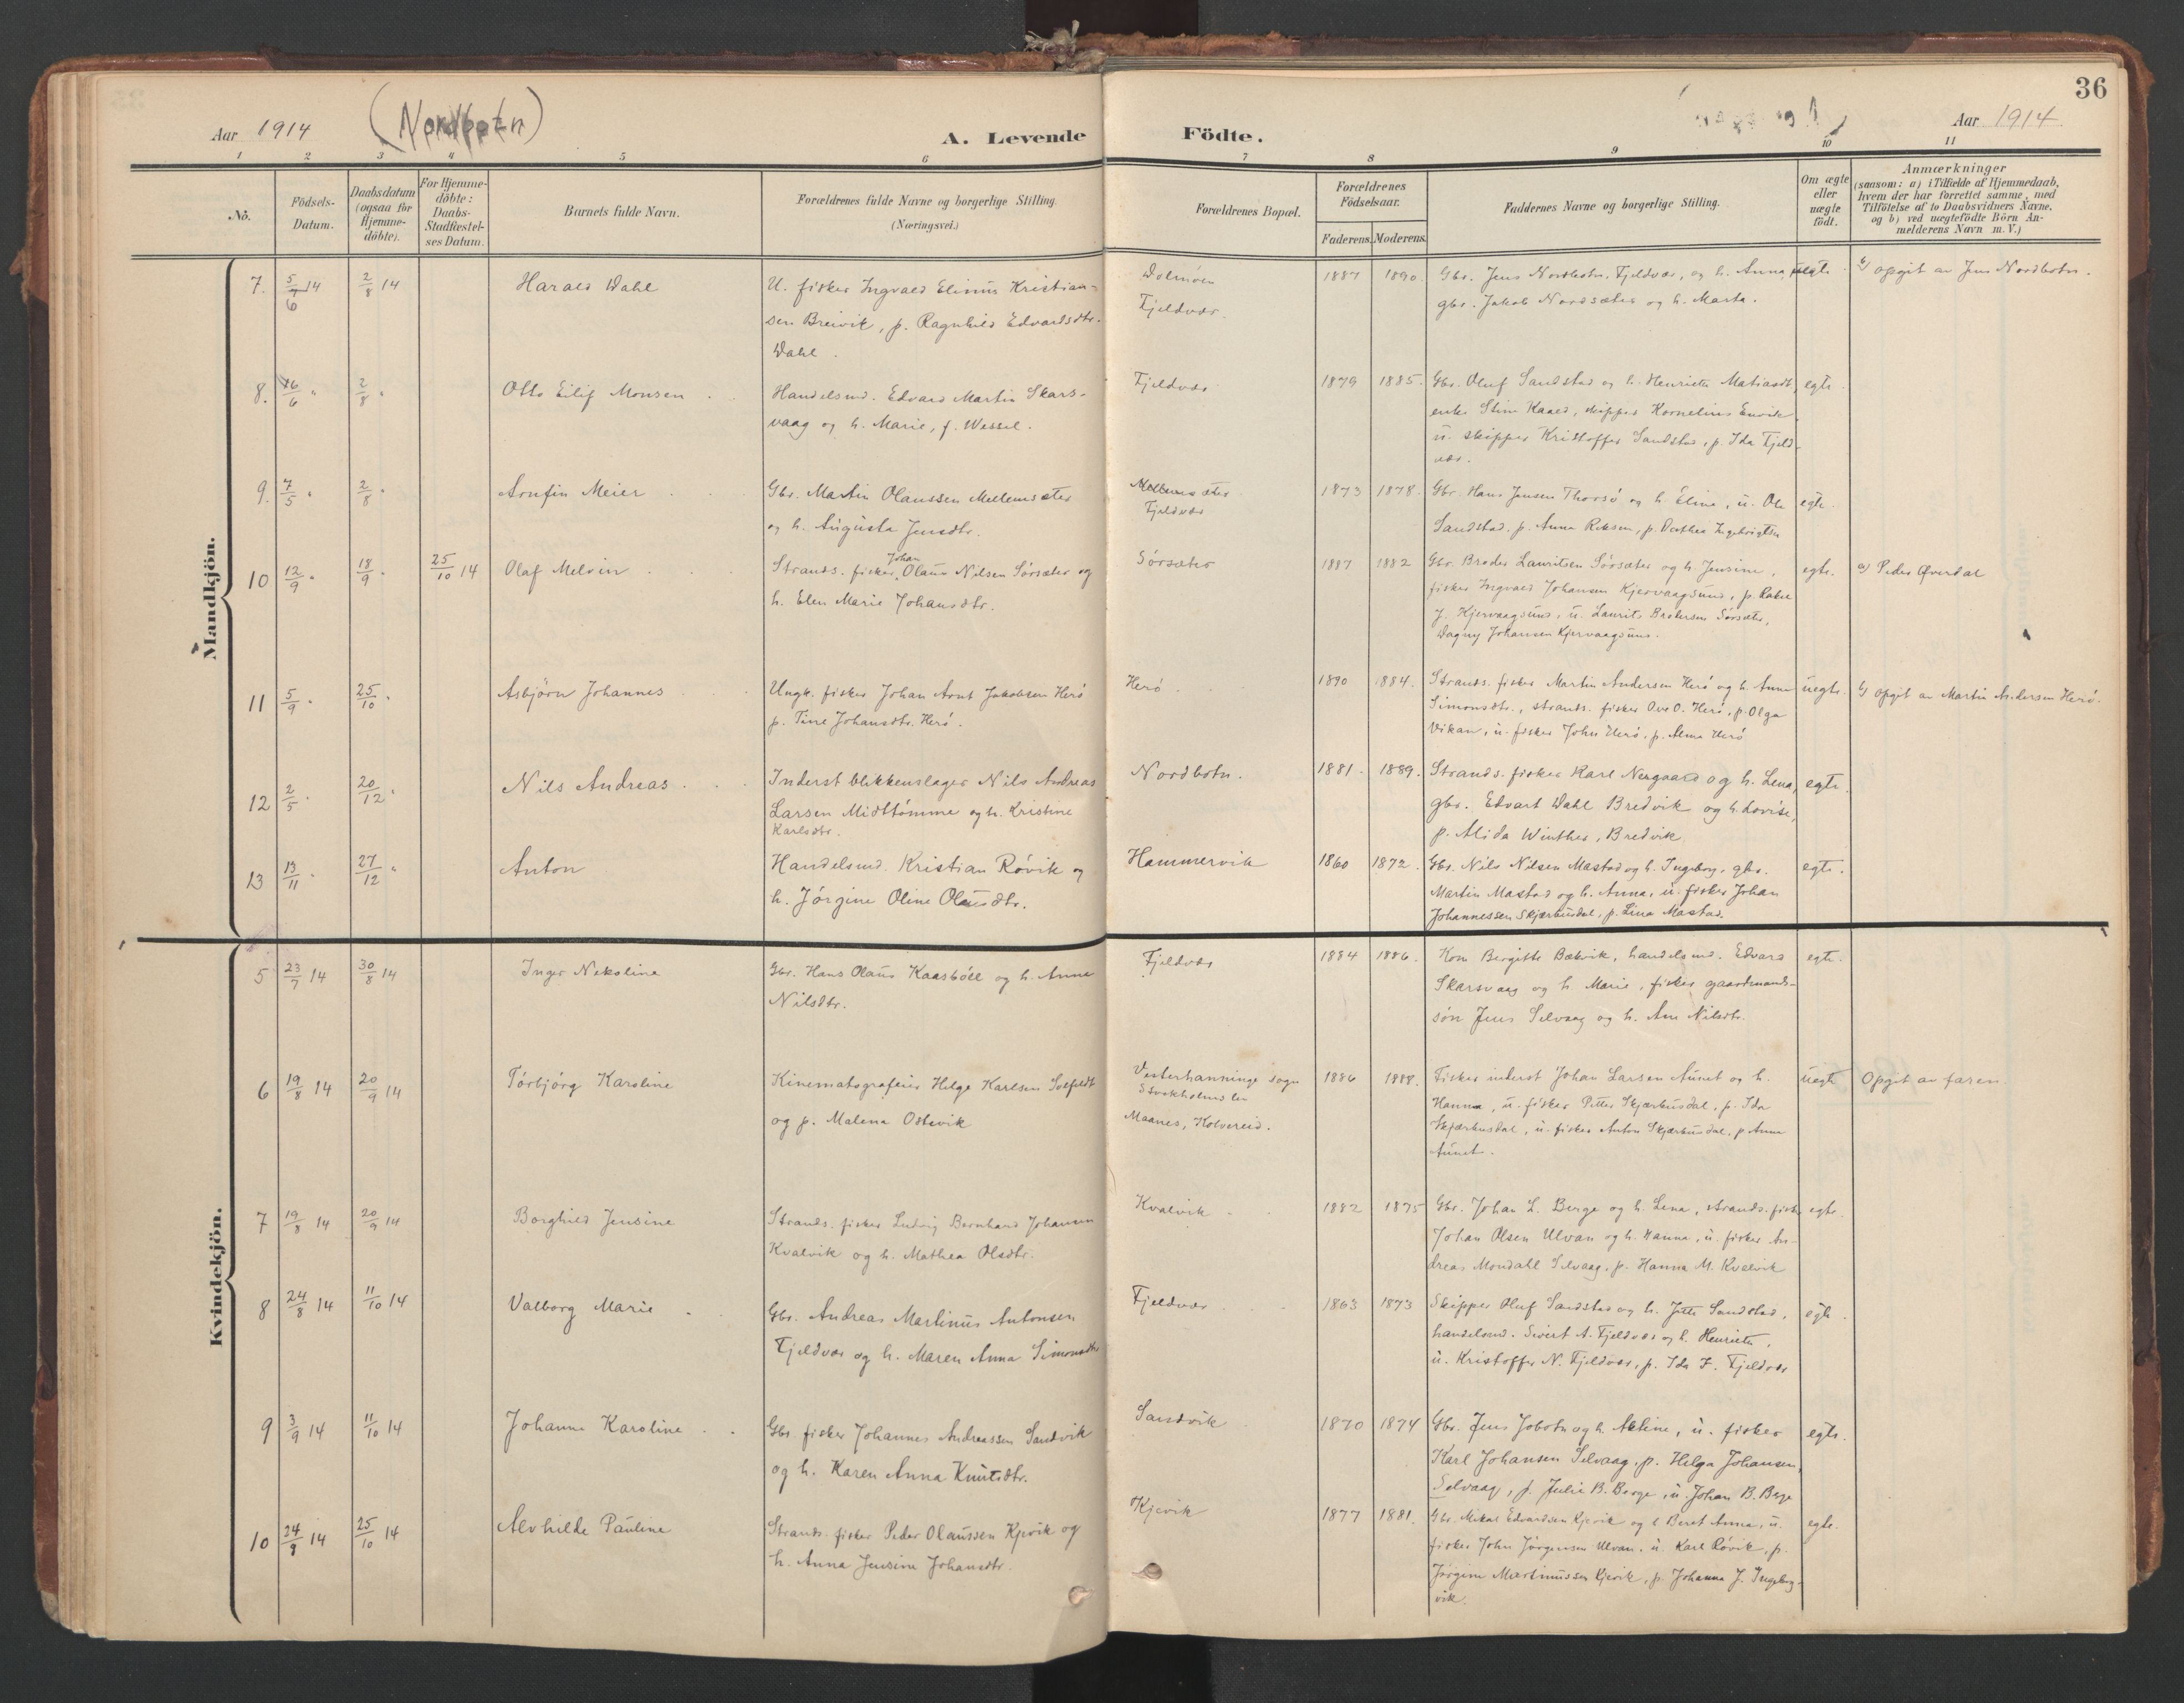 36
Aar 1914
(Nordbotn)
A. Levende Födte.
Aar 1914
1 2 3 4 5 6 7 8 9 10 11
No.
Födsels-Datum.
Daabsdatum (ogsaa for Hjemme-döbte).
For Hjemme-döbte: Daabs-Stadfæstel-ses Datum.
Barnets fulde Navn.
Forældrenes fulde Navne og borgerlige Stilling. (Næringsvei.)
Forældrenes Bopæl.
Forældrenes Födselsaar.
Faderens. Moderens.
Faddernes Navne og borgerlige Stilling.
Om ægte eller uægte födt.
Anmærkninger
(saasom: a) i Tilfælde af Hjemmedaab,
hvem der har forrettet samme, med
Tilföielse af to Daabsvidners Navne,
og b) ved uægtefödte Börn An-
melderens Navn m. V.)
Mandkjön.
7. 14 2/8 14 Harald Dahl
U. fisker Ingvald Elinus Kristian-
sen Breivik, p. Ragnhild Edvardsdtr.
Dahl.
Dolmöen
Fjeldvær.
1887 1890.
Gbr. Jens Nordbotn, Fjeldvær, og h. Anna, uegte. b) opgit av Jens Nordbotn.
gbr. Jakob Nordsæter og h. Marta.
8. 16/6 " 2/8 " Otto Eilif Monsen
Handelsmd. Edvard Martin Skars-
vaag og h. Marie, f. Wessel.
Fjeldvær
1879 1885.
Gbr. Oluf Sandstad og h. Henriette Matiasdt, egte.
enke Stine Kaald, skipper Kornelius Envik
u. skipper Kristoffer Sandstad, p. Ida Fjeld-
vær.
9. 7/5 " 2/8 " Arnfin Meier
Gbr. Martin Olaussen Mellemsæter
og h. Augusta Jensdtr.
Mellemsæter
Fjeldvær
1873 1878.
Gbr. Hans Jensen Thorsö og h. Eline, u. Ole egte.
Sandstad, p. Anna Riksen, p. Dorthea Ingebrigtsen
10 12/9 " 18/9 " 25/10 14 Olaf Melvin
Strands. fisker, Johan Olaus Nilsen Sörsæter og
h. Elen Marie Johansdtr.
Sörsæter
1887 1882
Gbr. Broder Lauritsen Sörsæter og h. Jensine, egte. a) Peder Øverdal
fisker Ingvald Johansen Kjervaagsund, p. Rakel
J. Kjervaagsund, u. Laurits Brodersen Sörsæter,
Dagny Johansen Kjervaagsund.
11 5/9 " 25/10 " Asbjörn Johannes
Ungk. fisker Johan Arnt Jakobsen Herö
p. Tine Johansdtr. Herö.
Herö
1890 1884.
Strands. fisker Martin Andersen Herö og h. Anna uegte. b) opgit av Martin Andersen Herö.
Simonsdtr., strands. fisker Ove O. Herö, p. Olga
Vikan, u. fisker John Herö, p. Alma Herö
12 2/5 " 20/12 " Nils Andreas
Inderst blikkenslager Nils Andreas
Larsen Midttömme og h. Kristine
Karlsdtr.
Nordbotn.
1881. 1889.
Strands. fisker Karl Nergaard og h. Lena, egte.
gbr. Edvart Dahl Bredvik og h. Lovise,
p. Alida Winther, Bredvik
13 13/11 " 27/12 " Anton
Handelsmd. Kristian Rövik og
h. Jörgine Oline Olausdtr.
Hammervik
1860 1872.
Gbr. Nils Nilsen Mastad og h. Ingeborg, gbr. egte.
Martin Mastad og h. Anna, u. fisker Johan
Johannessen Skjærbusdal, p. Lina Mastad.
Kvindekjön.
5 23/7 14 30/8 14 Inger Nekoline
Gbr. Hans Olaus Kaasböll og h. Anne
Nilsdtr.
Fjeldvær
1884 1886.
Kone Bergitte Bækvik, handelsmd. Edvard egte.
Skarsvaag og h. Marie, fisker gaardmands-
sön Jens Selvaag og h. Ane Nilsdtr.
6 19/8 14 20/9 14 Torbjörg Karoline
Kinematografeier Helge Karlsen Solfeldt
og p. Malena Ostevik
Vesterhanninge sogn
Stockholms len
Maanes, Kolvereid.
1886 1888.
Fisker inderst Johan Larsen Aunet og h. uegte Opgit av faren.
Hanna, u. fisker Petter Skjærbusdal, p. Ida
Skjærbusdal, u. fisker Anton Skjærbusdal, p. Anna
Aunet.
7 19/8 14 20/9 14 Borghild Jensine
Strands. fisker Ludvig Bernhard Johansen
Kvalvik og h. Mathea Olsdtr.
Kvalvik
1882 1875
Gbr. Johan L. Berge og h. Lena, strands. fisker egte.
Johan Olsen Ulvan og h. Hanna, u. fisker An-
dreas Mondahl Selvaag, p. Hanna M. Kvalvik
8 24/8 14 11/10 14 Valborg Marie
Gbr. Andreas Martinus Antonsen
Fjeldvær og h. Maren Anna Simonsdtr
Fjeldvær
1863 1873
Skipper Oluf Sandstad og h. Jette Sandstad, egte.
handelsmd. Sivert A. Fjeldvær og h. Henriette,
u. Kristoffer N. Fjeldvær, p. Ida F. Fjeldvær
9 3/9 14 11/10 14 Johanna Karoline
Gbr. fisker Johannes Andreassen Sandvik
og h. Karen Anna Knutsdtr.
Sandvik
1870 1874
Gbr. Jens Jobotn og h. Aktine, u. fisker egte.
Karl Johansen Selvaag, p. Helga Johansen,
Selvaag, p. Julie B. Berge, u. Johan B. Berge
10 24/9 14 25/10 14 Alvhilde Pauline
Strands. fisker Peder Olaussen Kjevik og
h. Anna Jensine Johansdtr.
Kjevik
1877 1881.
Gbr. Mikal Edvardsen Kjevik og h. Beret Anna, u. egte.
fisker John Jörgensen Ulvan, u. Karl Rövik, p.
Jörgine Martinussen Kjevik, p. Johanna J. Ingeborg-
vik.